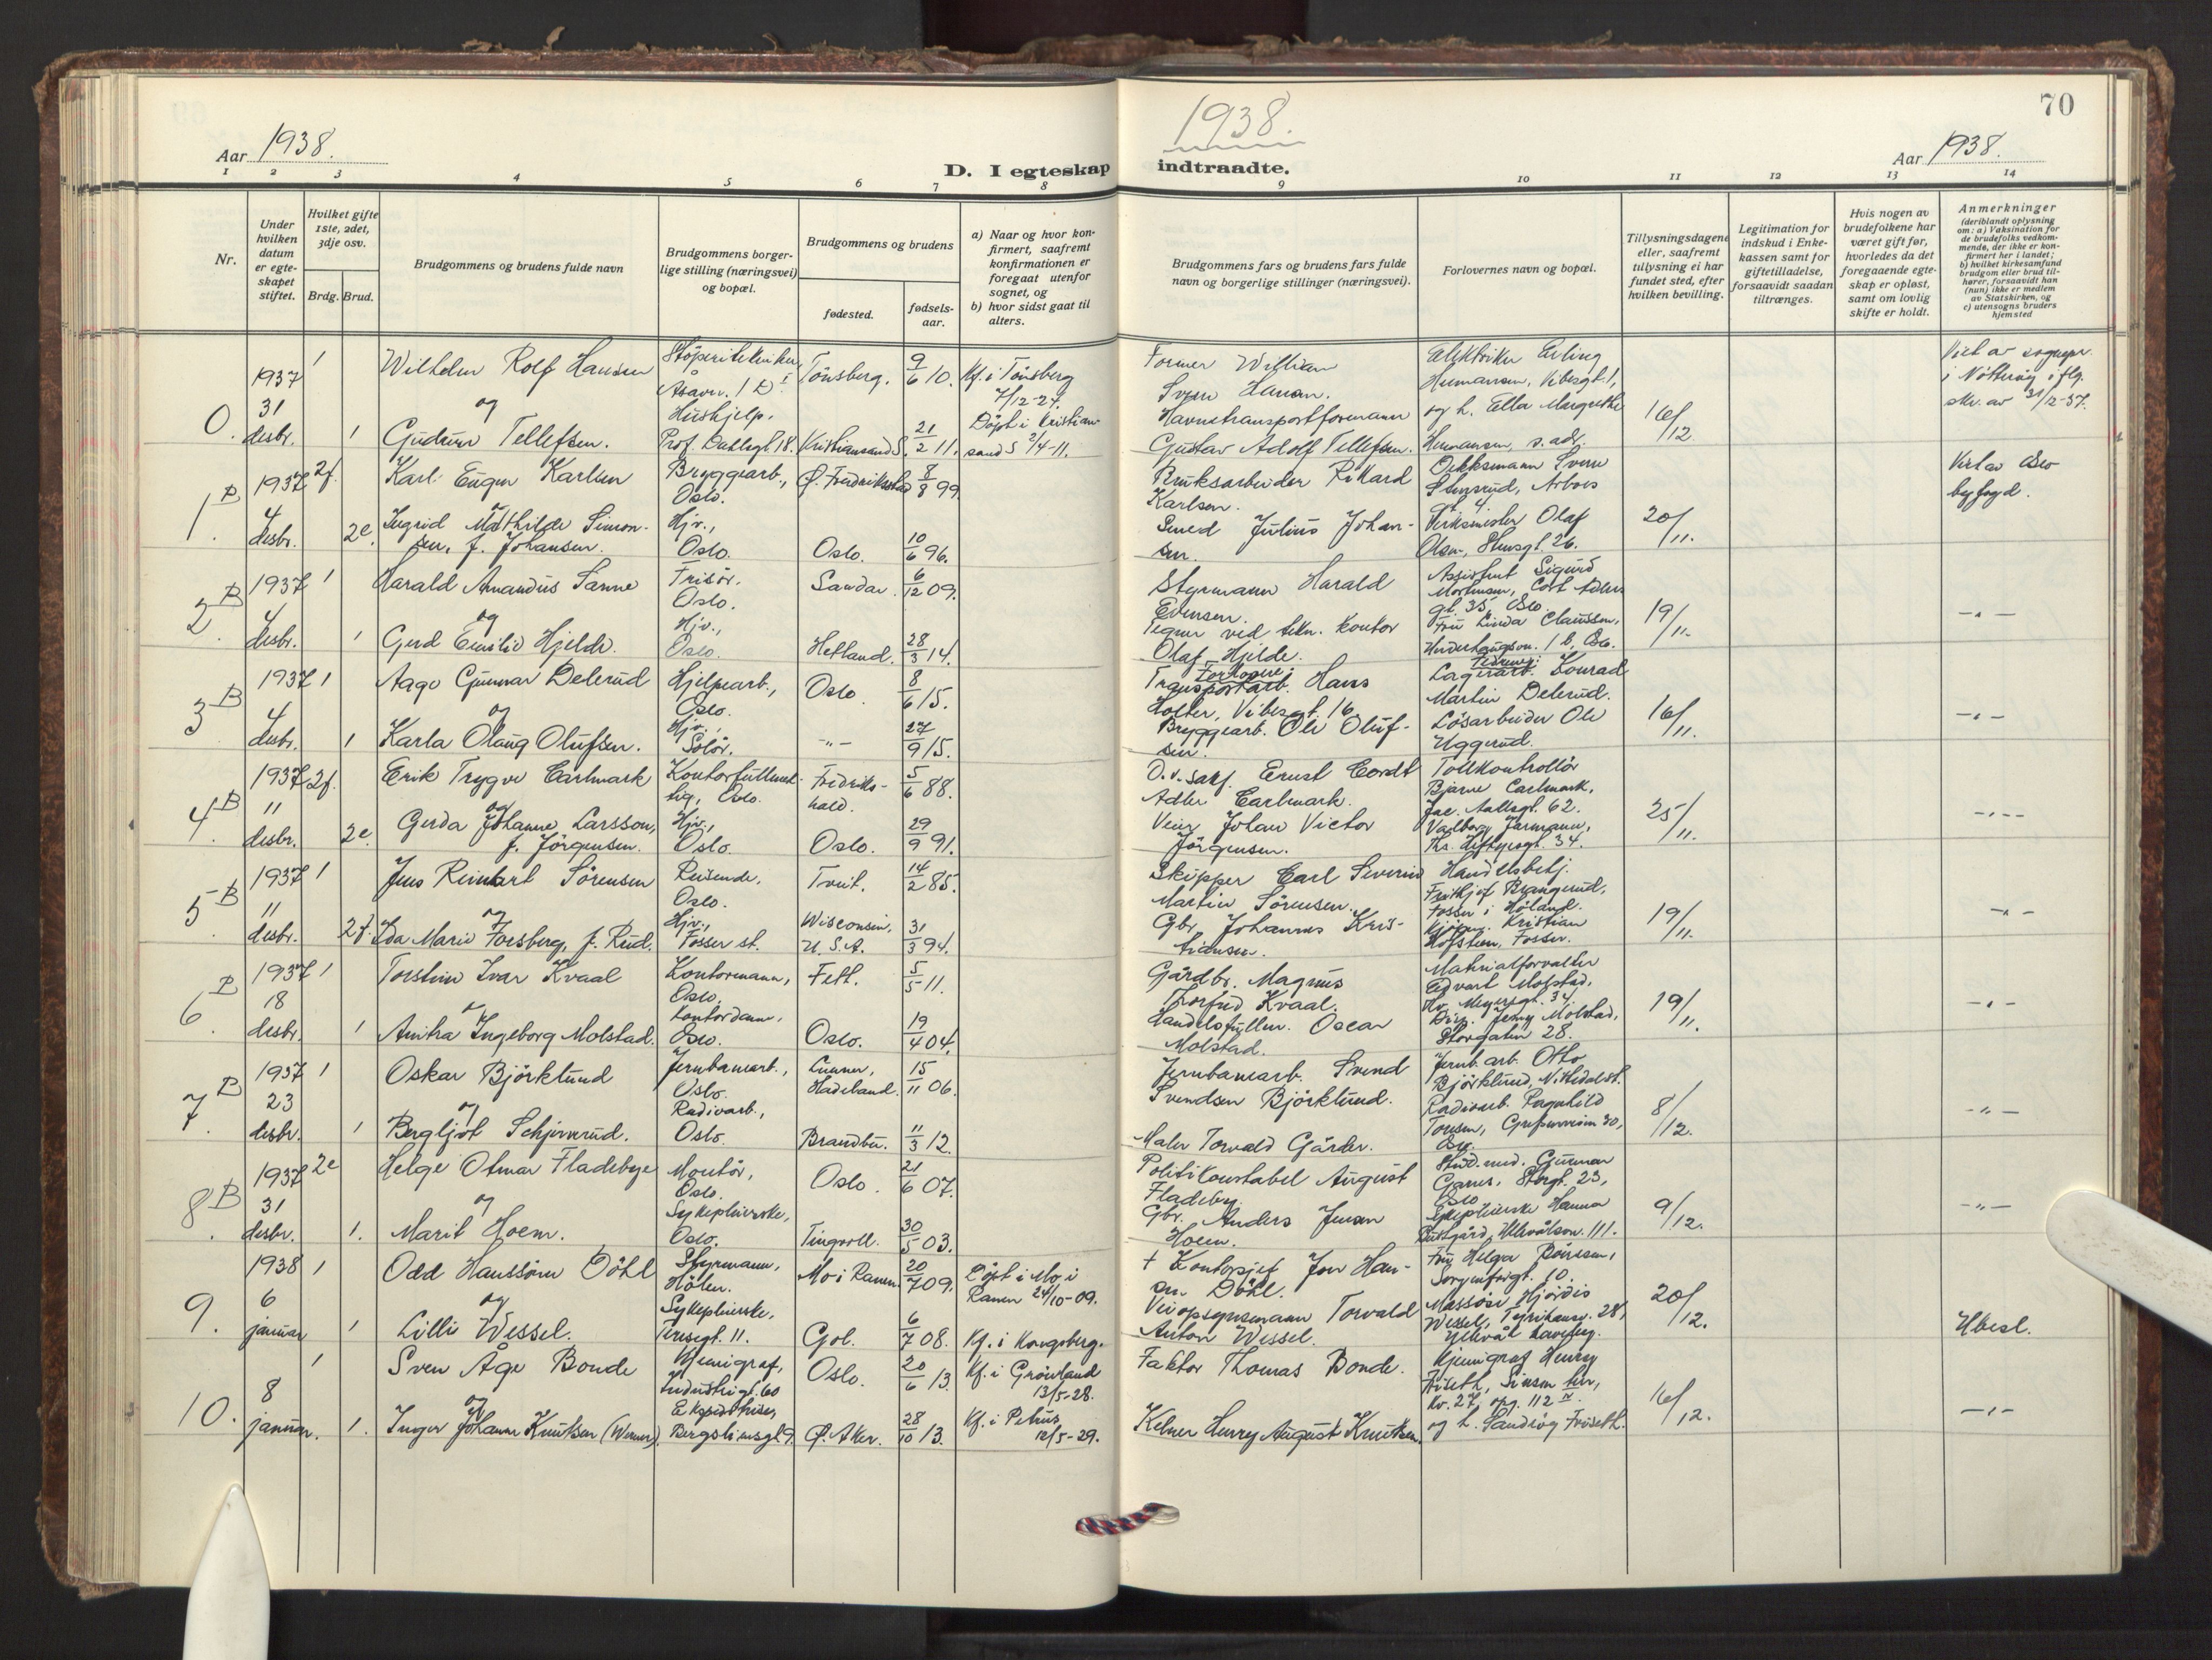 70
1938.
Aar 1938.
Aar 1938.
D. I egteskap indtraadte.
1 2 3 4 5 6 7 8 9 10 11 12 13 14
Nr.
Under hvilken datum er egteskapet stiftet.
Hvilket gifte 1ste, 2det, 3dje osv.
Brdg. Brud.
Brudgommens og brudens fulde navn
Brudgommens borgerlige stilling (næringsvei) og bopæl.
Brudgommens og brudens
fødested.
fødselsaar.
a) Naar og hvor konfirmert, saafremt konfirmationen er foregaat utenfor sognet, og
b) hvor sidst gaat til alters.
Brudgommens fars og brudens fars fulde navn og borgerlige stillinger (næringsvei).
Forlovernes navn og bopæl.
Tillysningsdagene eller, saafremt tillysning ei har fundet sted, efter hvilken bevilling.
Legitimation for indskud i Enkekassen samt for giftetilladelse, forsaavidt saadan tiltrænges.
Hvis nogen av brudefolkene har været gift før, hvorledes da det foregaaende egteskap er opløst, samt om lovlig skifte er holdt.
Anmerkninger
(deriblandt oplysning om: a) Vaksination for de brudefolks vedkommende, der ikke er konfirmert her i landet; b) hvilket kirkesamfund brudgom eller brud tilhører, forsaavidt han (hun) ikke er medlem av Statskirken, og c) utensogns bruders hjemsted
0. 1937 31 desbr. 1 Wilhelm Rolf Hansen Tönsberg. 9/6 10. Kf. i Tönsberg 7/12-24. Former William Hansen. Elektriker Erling Hermansen, Vibesgt. 1, Viet av sognepr. i Nötteröy iflg. skr. av 31/12-37.
og
1 Gudrun Tellefsen. Hushjelp. Prof. Dahlsgt. 18. Kristiansand S. 21/2 11. Döpt i Kristiansand S 2/4-11. Havnetransportformann Gustav Adolf Tellefsen. og h. Ella Margrethe Hermansen, s. adr. 16/12.
1 B. 1937 4 desbr. 2f. Karl Eugen Karlsen Bryggearb., Oslo. Ø. Fredrikstad 8/8 99. Bruksarbeider Rikard Karlsen. Sverre Stensrud, Viet av Oslo byfogd.
2e. Ingrid Mathilde Simonsen, f. Johansen. Hjv., Oslo. Oslo. 10/6 96. Smed Julius Johansen. Verksmester Olaf Olsen, Stensgt. 26. 20/11.
2 B. 1937 4 desbr. 1 Harald Amandus Sanne Frisör. Oslo. Sandar. 6/12 09. Styrmann Harald Edvnsen. Assistent Sigurd Mortensen, Cort Adlers gt. 35, Oslo.
og
1 Gerd Emilie Hjelde. Hjv., Oslo. Hetland. 28/3 14. Tegner ved tekn. kontor Olaf Hjelde. Fru Linda Claussen, 1 b, Oslo. 19/11. -"-
3 B 1937 4 desbr. 1 Aage Gunnar Delerud Hjelpearb., Oslo. Oslo. 8/6 15. Transportarb. Hans Holter, Vibesgt. 16. Lagerarb. Konrad Martin Delerud.
og
1 Karla Olaug Olufsen. Hjv., Solör. -"- 27/9 15. Bryggearb. Ole Olufsen. Lösarbeider Ole Uggerud. 16/11. -"-
4 B 1937 11 desbr. 2f. Erik Trygve Carlmark Kontorfullmektig, Oslo. Fredrikshald. 5/6 88. O.r.sakf. Ernst Cordt Adler Carlmark. Tollkontrollör Bjarne Carlmark, Jac. Aallsgt. 62.
og
2e. Gerda Johanne Larsson, f. Jörgensen. Hjv., Oslo. Oslo. 29/9 91. Veier Johan Victor Jörgensen. Valborg Jarmann, Ths. Heftyesgt. 34. 25/11. -"-
5 B 1937 11 desbr. 1 Jens Reinhart Sörensen Reisende, Oslo. Tveit. 14/2 85. Skipper Carl Severin Martin Sörensen. Handelsbetj. Frithjof Brangerud, Fosser i Höland.
og
2f. Ida Marie Forsberg, f. Rud. Hjv., Fosser st. Wisconsin, U.S.A. 31/3 94. Gbr. Johannes Kristiansen. Kristian Hofsteen, Fosser. 19/11. -"-
6 B 1937 18 desbr. 1 Torstein Ivar Kvaal Kontormann, Oslo. Feth. 5/5 11. Gårdbr. Magnus Torfred Kvaal. Materialforvalter Edvart Molstad, Meyersgt. 34.
1 Anitra Ingeborg Molstad. Kontordame, Oslo. Oslo. 19/4 04. Handelsfullm. Oscar Molstad. Jenny Molstad, Storgaten 28. 19/11. -"-
7 B 1937 23 desbr. 1 Oskar Björklund Jernbanearb., Oslo. Lunner, Hadeland. 15/11 06. Jernbanearb. Svend Svendsen Björklund. Jernb. arb. Otto Björklund,
og
1 Bergljot Schjervrud. Radioarb., Oslo. Brandbu. 11/3 12. Maler Torvald Gärder. Radioarb. Ragnhild Tonsen, 8/12. -"-
8 B 1937 31 desbr. 2e Helge Otmar Fladebye Montör, Oslo. Oslo. 21/6 07. Politikonstabel August Fladeby. Stud. med. Gunnar Storgt. 23, Oslo
og
1. Marit Hoem. Sykepleierske, Oslo. Tingvoll. 30/5 03. Gbr. Anders Jensen Hoem. Sykepleierske Hanna Ullevålsvn. 111. 9/12. -"-
9. 1938 6 januar 1 Odd Hanssönn Döhl Styrmann, Hölen. Mo i Ranen 20/7 09. Döpt i Mo i Ranen 24/10-09. + Kontorsjef Jon Hansen Döhl. Fru Helga Börresen, Sorgenfrigt. 10.
og
1 Lilli Wessel. Sykepleierske, Teresegt. 11. Gol. 6/7 08. Kf. i Kongsberg. Veiopsynsmann Torvald Anton Wessel. Massöse Hjördis Wessel, Tyrihansv. 28, Ullevål haveby. 20/12. Ubesl.
10. 8 januar. 1 Sven Åge Bonde Kjemigraf, Industrigt. 60 Oslo. 20/6 13. Kf. i Grönland 13/5-28. Faktor Thomas Bonde. Kjemigraf Henry Friseth, Sinsen terr, kv. 27, opg. 112
og
1. Inger Johanne Knutsen (Werner). Ekspeditrise, Bergsliensgt. 9. Ø. Aker. 28/10 13. Kf. i Petrus 12/5-29. Kelner Henry August Knutsen. og h. Sandvög Friseth. 16/12. -"-